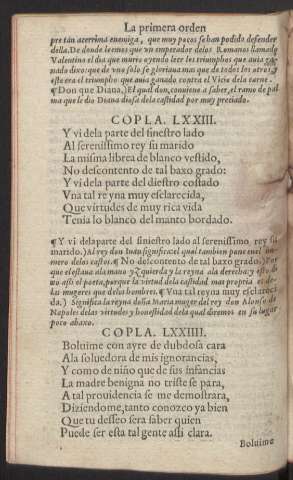 La primera orden
pre tan acerrima enemiga, que muy pocos se han podido defender
della. De donde leemos que vn emperador delos Romanos llamado
Valentino el dia que murio oyendo leer los triumphos que auia ga-
nado dixo: que de vno solo se gloriaua mas que de todos los otros, y
este era el triumpho que auia ganado contra el Vicio dela carne.
¶ Don que Diana.) El qual don, conuiene a saber, el ramo de pal
ma que le dio Diana diosa dela castidad por muy preciado.
COPLA. LXXIII.
Y vi dela parte del sinestro lado
Al serenissimo rey su marido
La misma librea de blanco vestido,
No descontento de tal baxo grado:
Y vi dela parte del diestro costado
Vna tal reyna muy esclarecida,
Que virtudes de muy rica vida
Tenia lo blanco del manto bordado.
¶ Y vi dela parte del siniestro lado al serenissimo rey su
marido.) Al rey don Iuan significa el qual tambien pone enel nu-
mero delos castos. ¶ No descontento de tal baxo grado.) Por
que el estaua ala mano yzquierda y la reyna ala derecha: y esto di
xo assi el poeta, porque la virtud dela castidad mas propria es de
las mugeres que delos hombres. ¶ Vna tal reyna muy esclareci
da.) Significa la reyna doña Maria muger del rey don Alonso de
Napoles delas virtudes y honestidad dela qual diremos en su lugar
poco abaxo.
COPLA. LXXIIII.
Boluime con ayre de dubdosa cara
Ala soluedora de mis ignorancias,
Y como de niño que de sus infancias
La madre benigna no triste se para,
A tal prouidencia se me demostrara,
Diziendome, tanto conozco ya bien
Que tu desseo sera saber quien
Puede ser esta tal gente assi clara.
Boluime